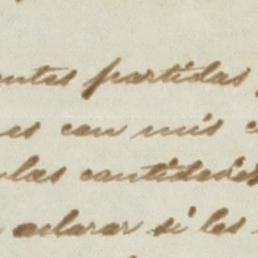 entes partidas
es con mis
las cantidades
aclarar si los